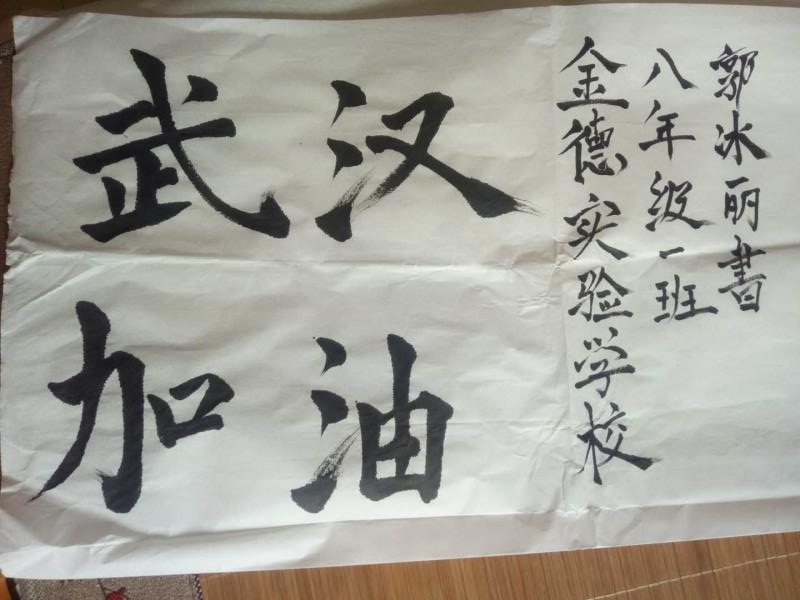 武汉
加油
金德实验学校
八年级一班
郭冰丽書